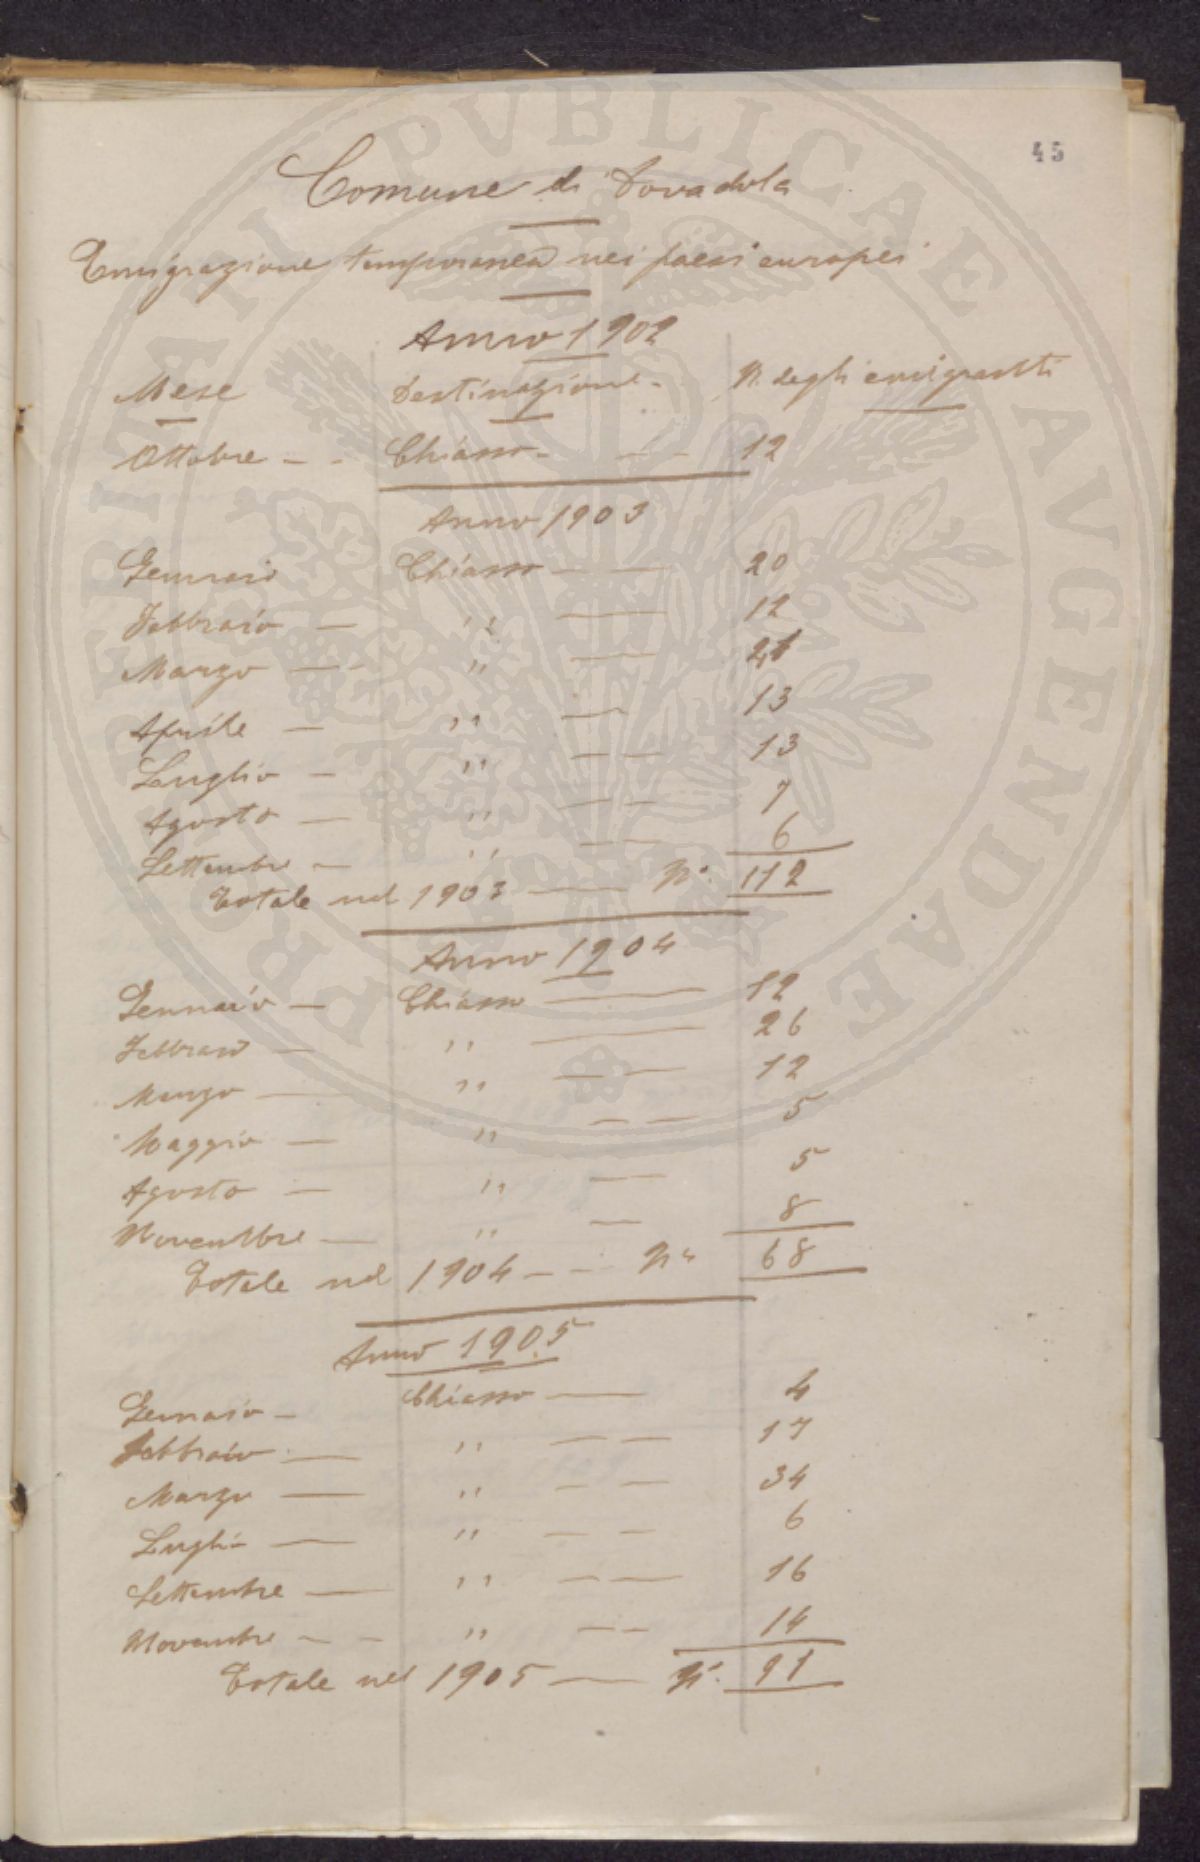 45
Comune di Dovadola
Emigrazione temporanea nei paesi europei
Anno 1902
Mese Destinazione N. degli emigranti
Ottobre Chiasso 12
Anno 1903
Gennaio Chiasso 20
Febbraio " 12
Marzo " 41
Aprile " 13
Luglio " 13
Agosto " 7
Settembre " 6
Totale nel 1903 No. 112
Anno 1904
Gennaio Chiasso 12
Febbraio " 26
Marzo " 12
Maggio " 5
Agosto " 5
Novembre " 8
Totale nel 1904 No 68
Anno 1905
Gennaio Chiasso 4
Febbraio " 17
Marzo " 34
Luglio " 6
Settembre " 16
Novembre " 14
Totale nel 1905 No. 91
PERPRINATI PVBLICAE AVGENDAE